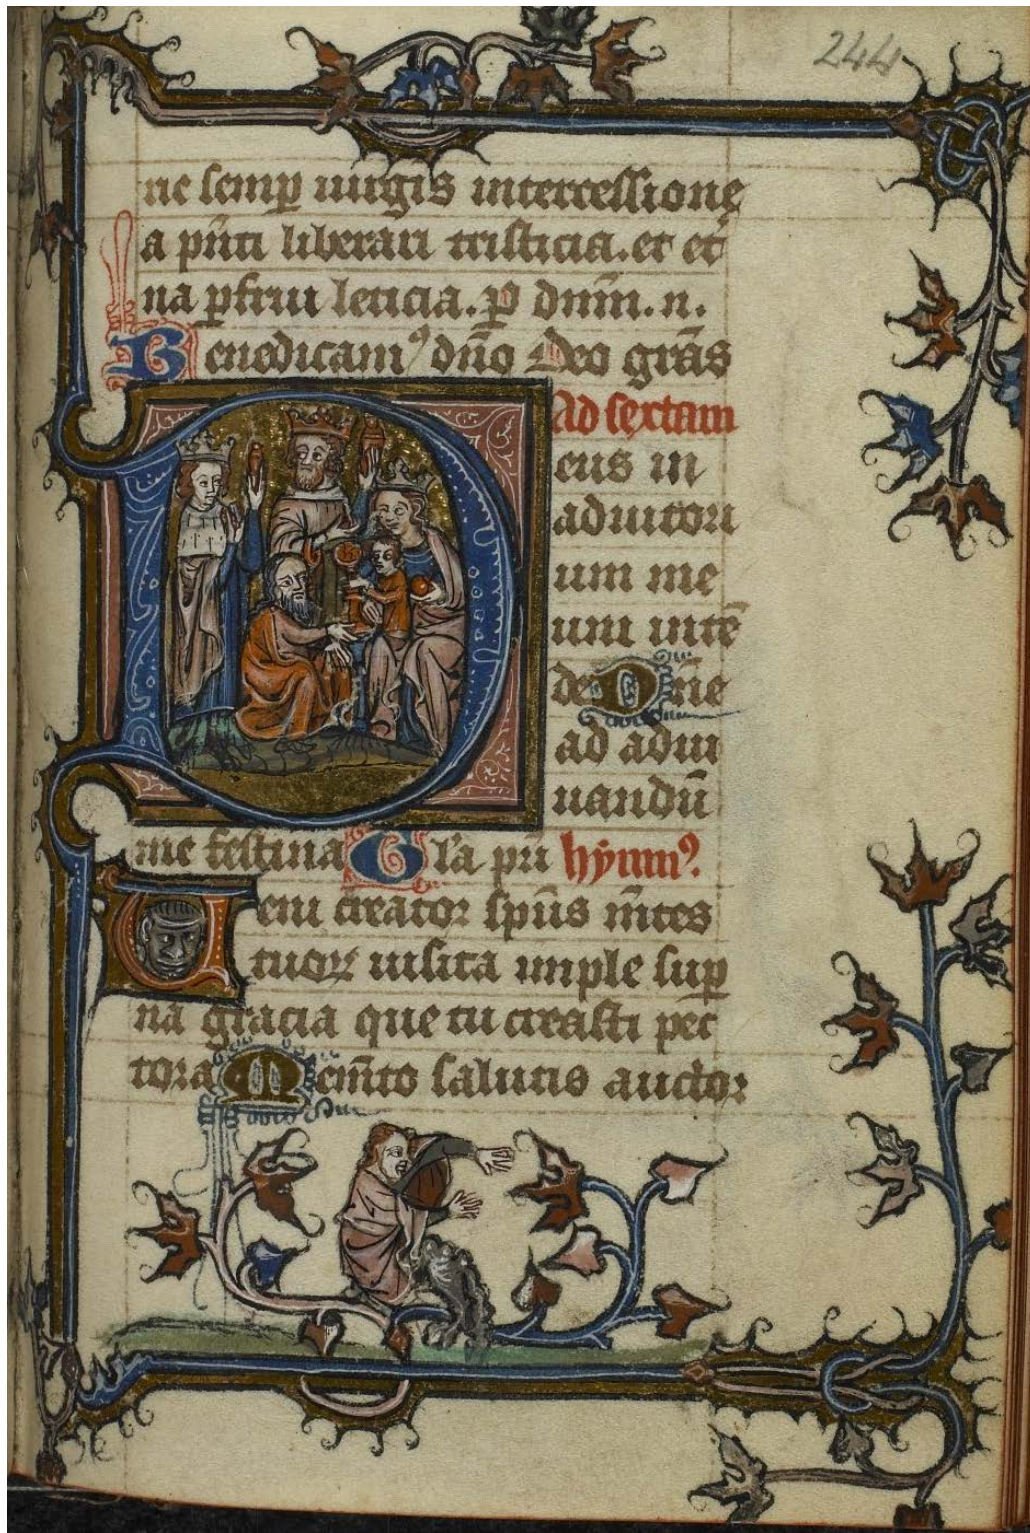 244
ne semp uirgis intercessione
a pñti liberari tristicia. et et̾
na pfrui leticia. p dnm̄. n.
Benedicam⁹ dño Deo grãs
Ad sextam
Deus in
adiutori
um me
um intē
de Dñe
ad adiu
uandū
me festina Gľa pri hymn⁹.
Ueni creator spũs m̃tes
tuoꝝ uisita imple sup̱
na gracia que tu creasti pec
tora Mem̃to salutis auctor